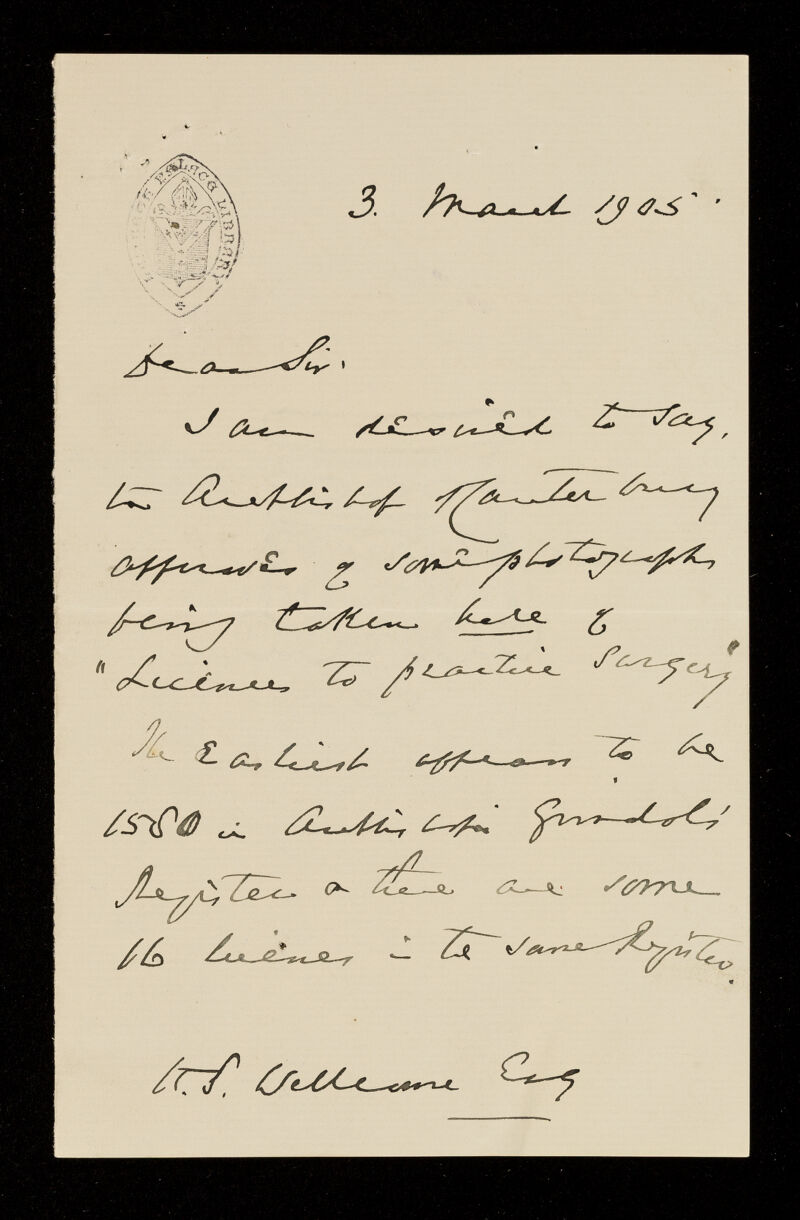 LAMBETH PALACE LIBRARY
3. March 1905.
Dear Sir.
I am desired to say,
the Archbishop of Canterbury
approves of some photographs
being taken here of
"Licences to practice Surgery"
The Earliest appears to be
1580 in Archbishop Grindal's
Register & there are some
16 licenses in the same Register.
H. S. Wellcome Esq